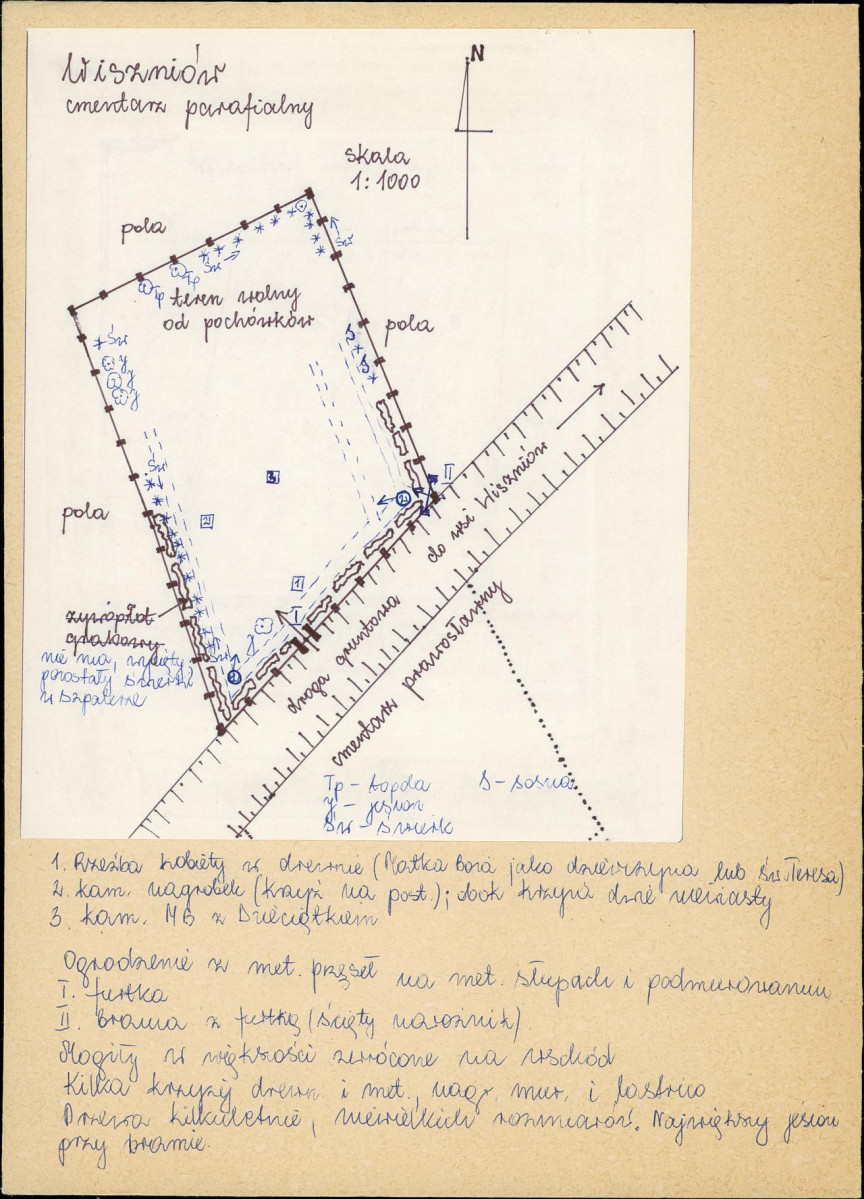 Wiszniów
cmentarz parafialny
N
skala
1:1000
pola
Św
Św
Tp
Tp
teren wolny
od pochówków
pola
S
S
Św
J
J
J
Św
II
3
2
2
pola
1
I
J
do wsi Wiszniów
żywopłot
grabowy
nie ma, wycięty
pozostały świerki
w szpalerze
Św
1
droga gruntowa
cmentarz prawosławny
Tp – topola S – sosna
J – jesion
Św – świerk
1. Rzeźba kobiety w drewnie (Matka Boża jako dziewczyna lub św. Teresa)
2. kam. nagrobek (krzyż na post.); obok krzyża dwie niewiasty
3. kam. MB z Dzieciątkiem
Ogrodzenie z met. przęseł na met. słupach i podmurowaniu
I. furtka
II. Brama z furtką (ścięty narożnik)
Mogiły w większości zwrócone na wschód
Kilka krzyży drewn. i met., nagr. mur. i lastrico
Drzewa kilkuletnie, niewielkich rozmiarów. Największy jesion
przy bramie.